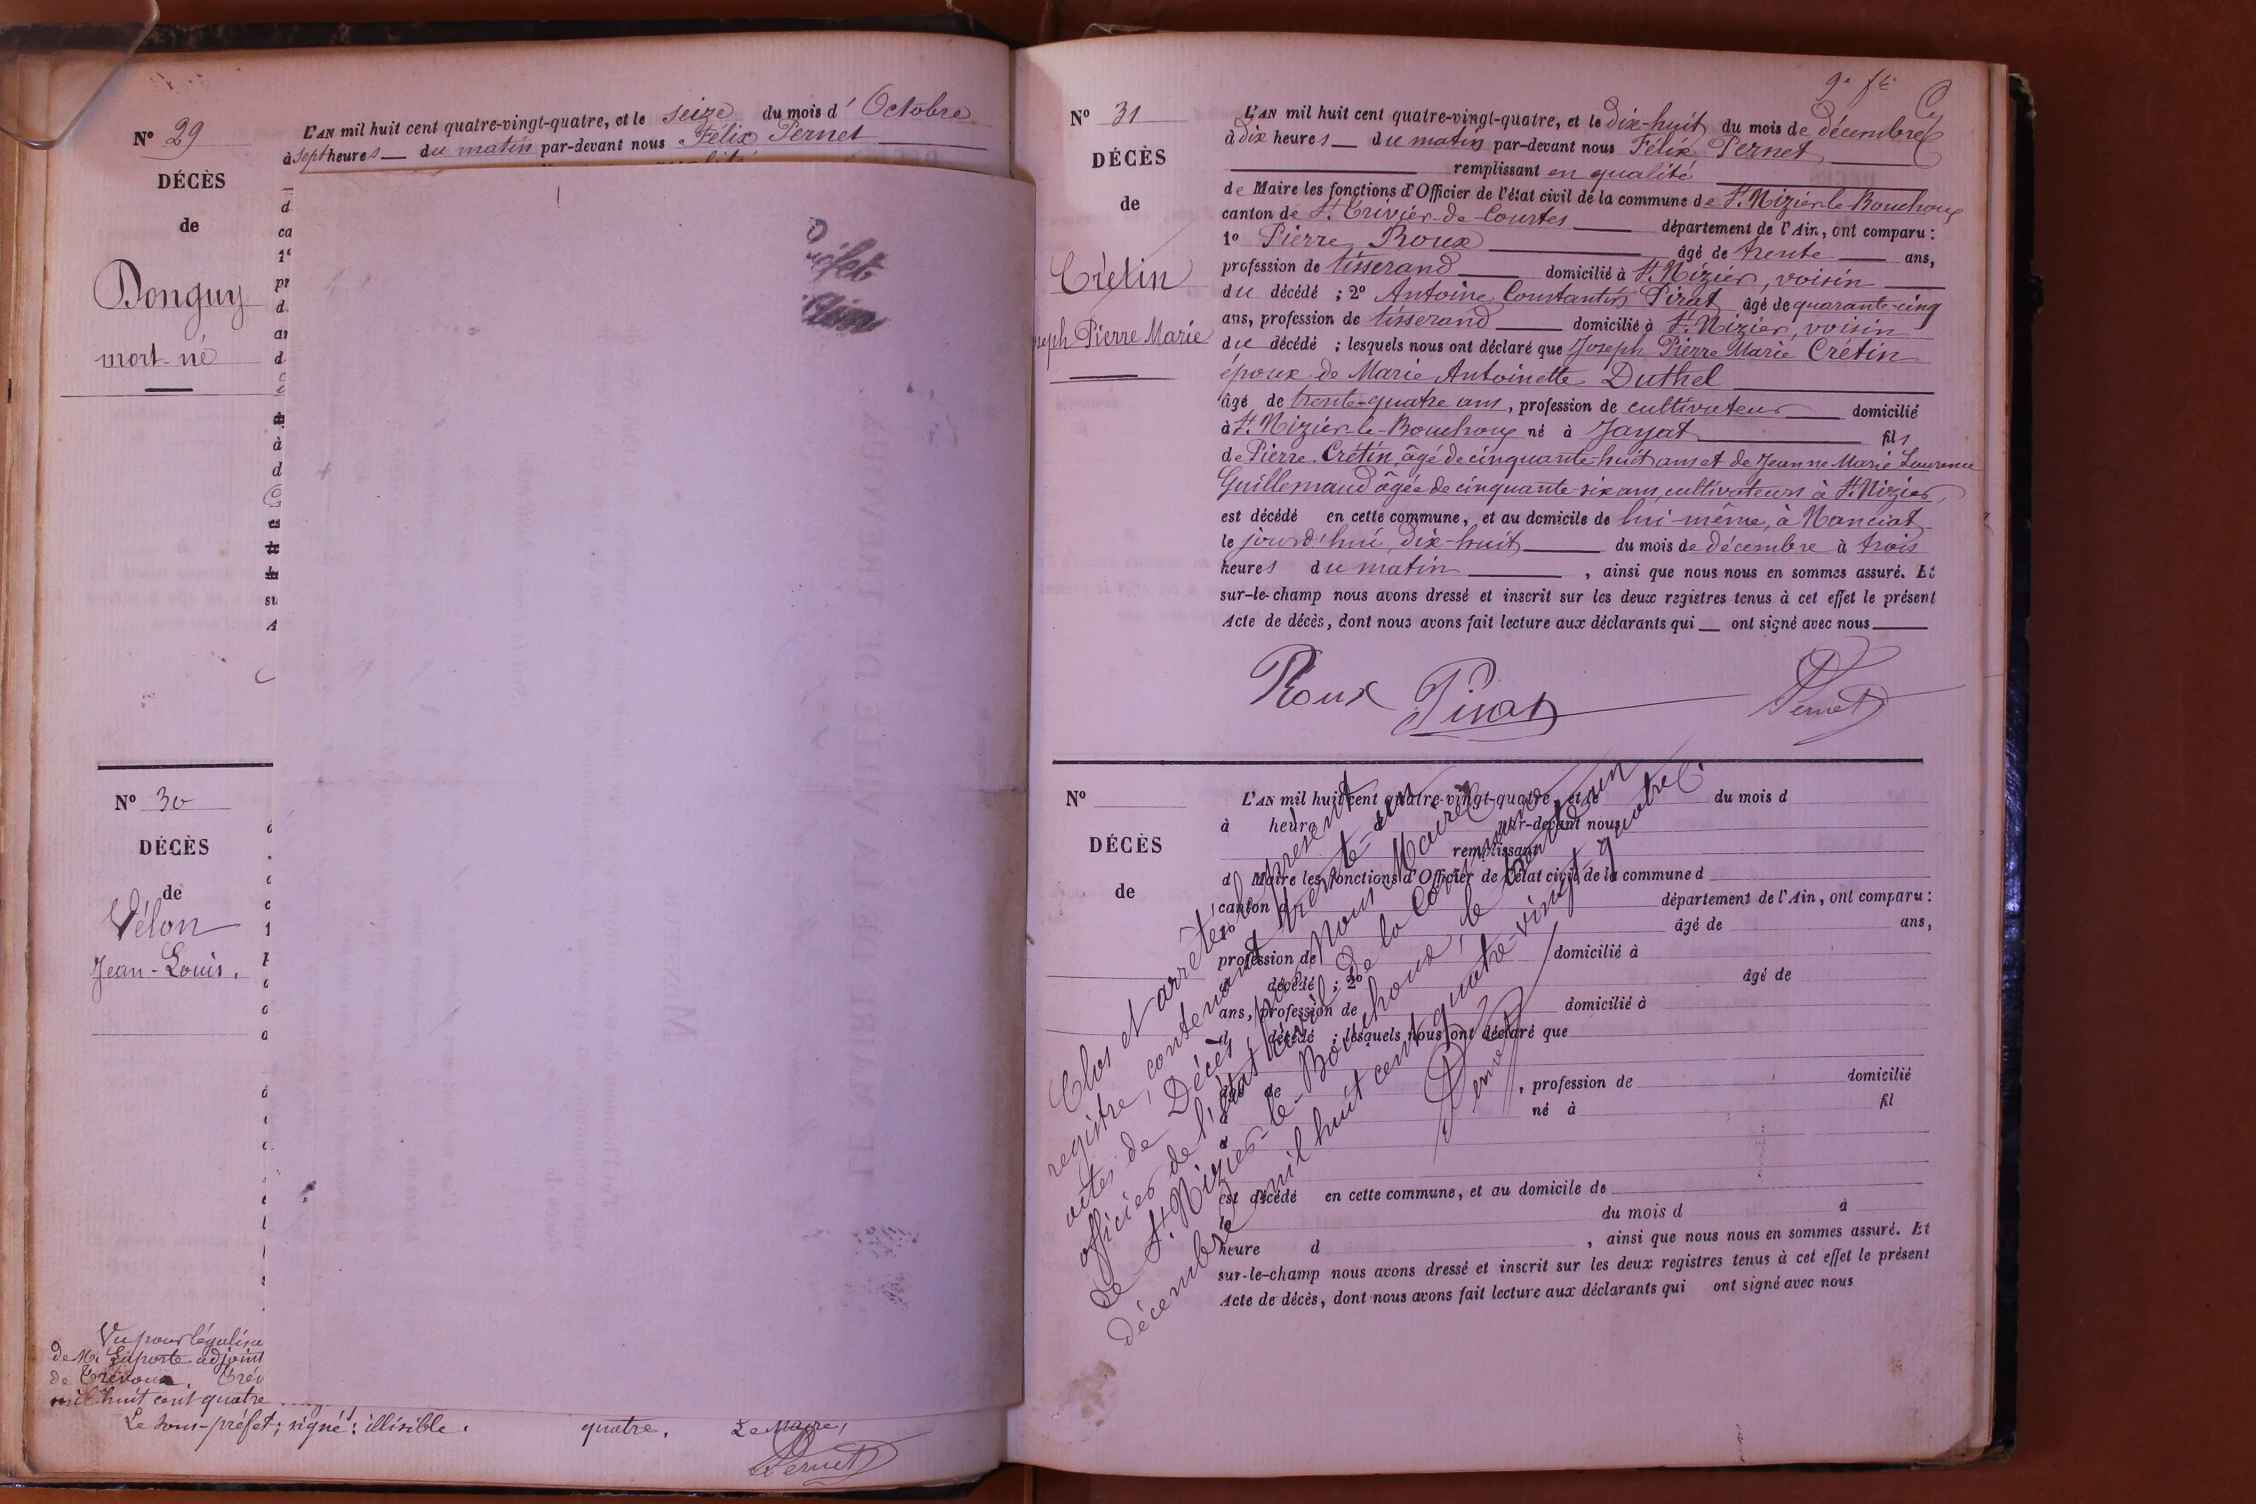 Nº 29
DÉCÈS
de
Donguy
mort-né
L'AN mil huit cent quatre-vingt-quatre, et le seize du mois d'Octobre
à sept heures du matin par-devant nous Félix Pernet
Nº 30
DÉCÈS
de
Vélon
Jean-Louis.
Vu pour légalisa
de Mr Laporte adjoint
de Trévoux. Trév
mil huit cent quatre
Le sous-préfet; signé: illisible.
quatre. Le Maire,
Pernet
9e fet
Nº 31
DÉCÈS
de
Crétin
Joseph Pierre Marie
L'AN mil huit cent quatre-vingt-quatre, et le dix-huit du mois de décembre
à dix heures du matin par-devant nous Félix Pernet
remplissant en qualité
de Maire les fonctions d'Officier de l'état civil de la commune de St. Nizier-le-Bouchoux
canton de St. Trivier-de-Courtes département de l'Ain, ont comparu :
1º Pierre Roux âgé de trente ans,
profession de tisserand domicilié à St. Nizier, voisin
du décédé ; 2º Antoine Constantin Pirat âgé de quarante-cinq
ans, profession de tisserand domicilié à St. Nizier, voisin
du décédé ; lesquels nous ont déclaré que Joseph Pierre Marie Crétin
époux de Marie Antoinette Duthel
âgé de trente-quatre ans, profession de cultivateur domicilié
à St. Nizier-le-Bouchoux né à Jayat fils
de Pierre Crétin, âgé de cinquante-huit ans et de Jeanne Marie Laurence
Guillemaud âgée de cinquante-six ans, cultivateurs à St. Nizier,
est décédé en cette commune, et au domicile de lui-même, à Manciat
le jourd'hui, dix-huit du mois de décembre à trois
heures du matin, ainsi que nous nous en sommes assuré. Et
sur-le-champ nous avons dressé et inscrit sur les deux registres tenus à cet effet le présent
Acte de décès, dont nous avons fait lecture aux déclarants qui ont signé avec nous
Roux Pirat Pernet
Nº
DÉCÈS
de
L'AN mil huit cent quatre-vingt-quatre, et le du mois d
à heure par-devant nous
remplissant
d Maire les fonctions d'Officier de l'état civil de la commune d
canton d département de l'Ain, ont comparu :
1º âgé de ans,
profession de domicilié à
d décédé ; 2º âgé de
ans, profession de domicilié à
d décédé ; lesquels nous ont déclaré que
âgé de , profession de domicilié
à né à fil
d
est décédé en cette commune, et au domicile de
le du mois d à
heure d , ainsi que nous nous en sommes assuré. Et
sur-le-champ nous avons dressé et inscrit sur les deux registres tenus à cet effet le présent
Acte de décès, dont nous avons fait lecture aux déclarants qui ont signé avec nous
Clos et arrêté le présent
registre, contenant trente-un
actes de Décès, par Nous Maire,
officier de l'état civil de la Commune
de St. Nizier-le-Bouchoux, le trente-un
décembre mil huit cent quatre-vingt-quatre.
Pernet